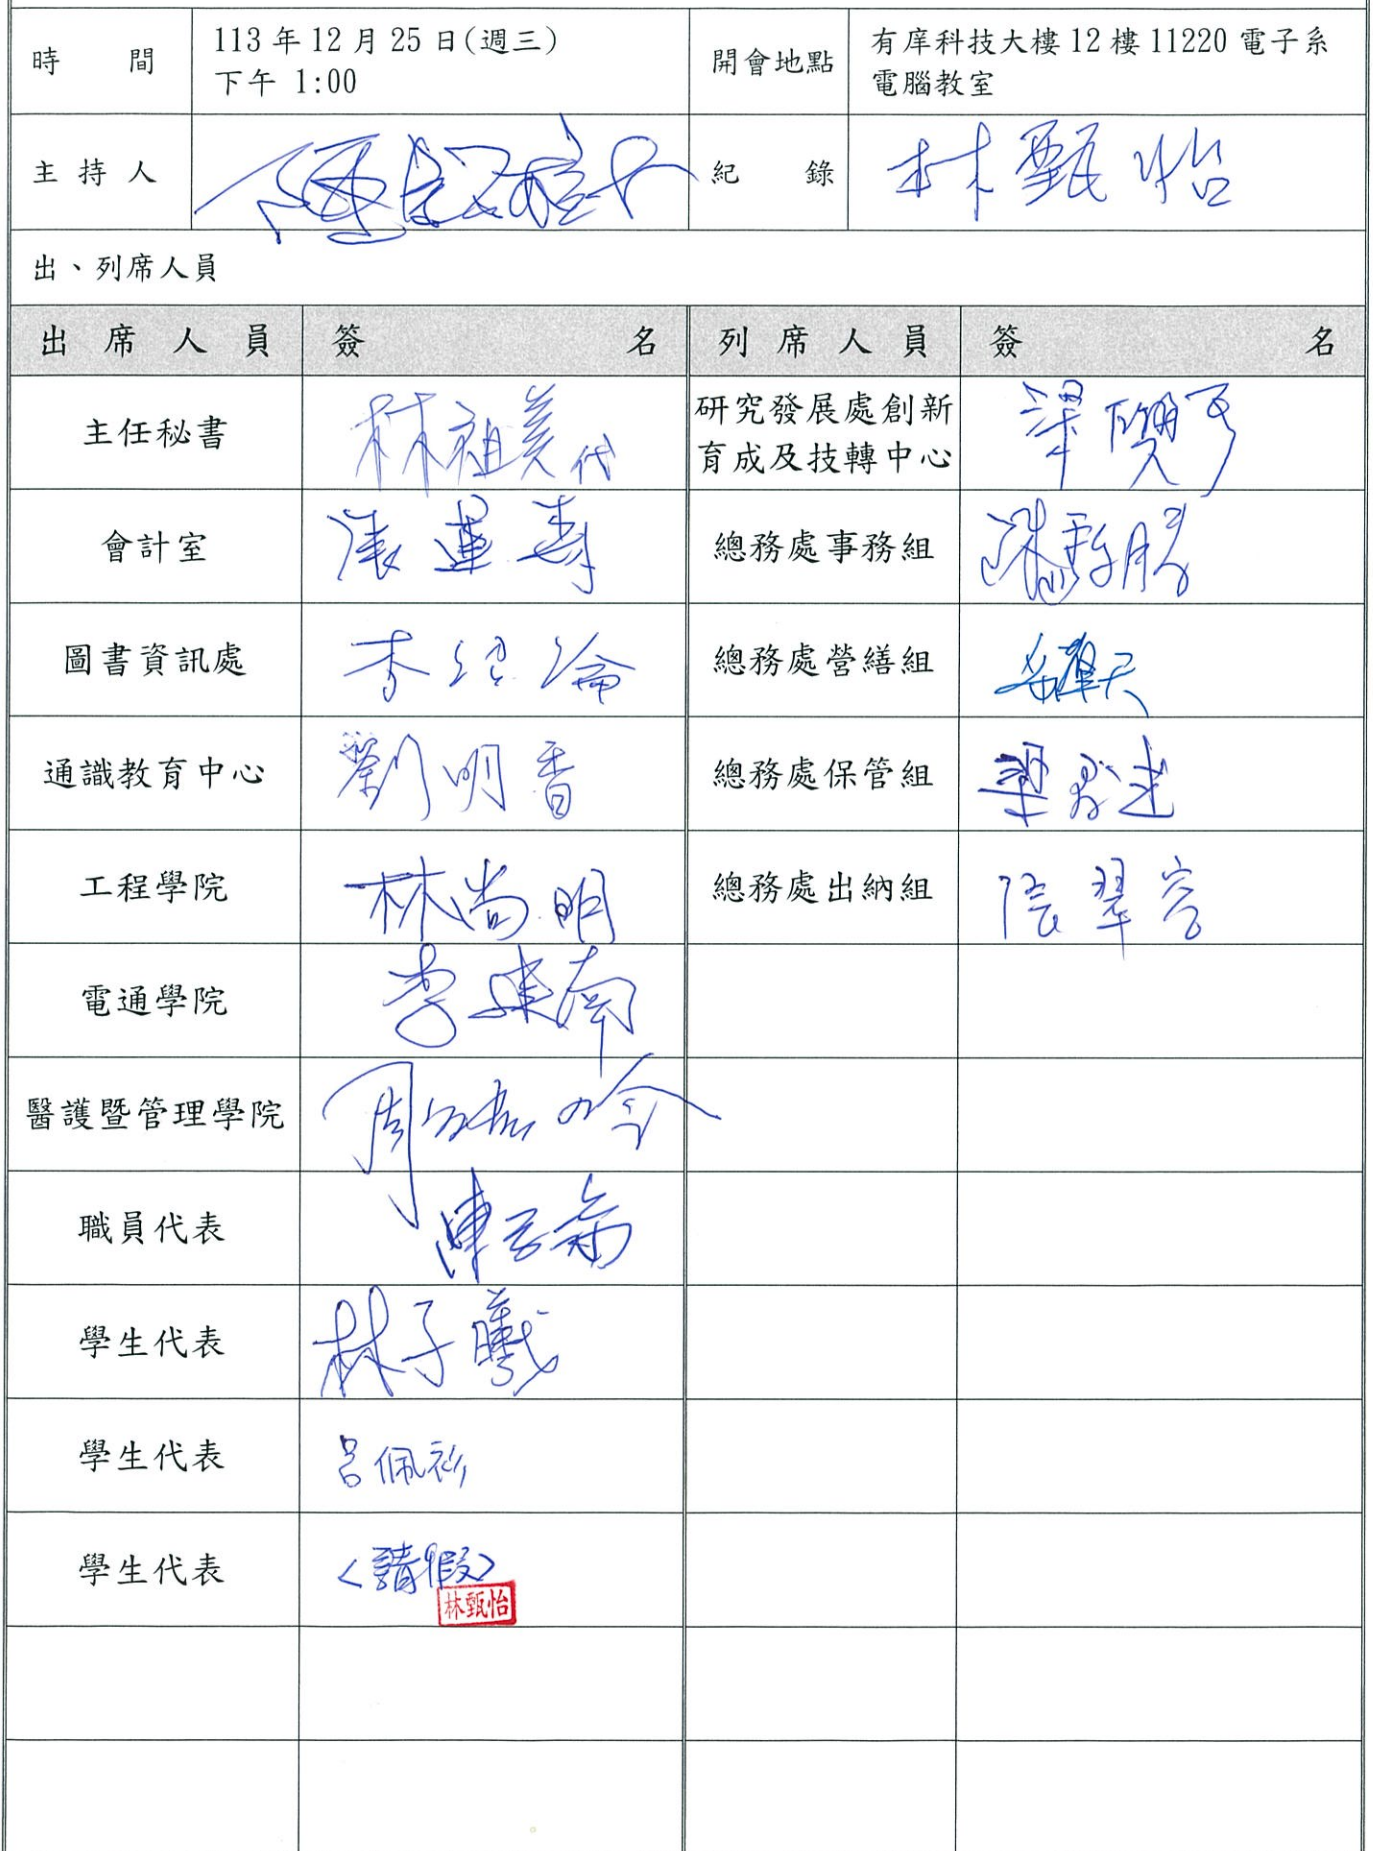 時 間 113年12月25日(週三) 下午 1:00 開會地點 有庠科技大樓12樓11220電子系電腦教室
主持人 紀 錄 林甄怡
出、列席人員
出席人員 簽 名 列席人員 簽 名
主任秘書 林祖美代 研究發展處創新育成及技轉中心
會計室 總務處事務組
圖書資訊處 總務處營繕組
通識教育中心 劉明香 總務處保管組
工程學院 林尚明 總務處出納組
電通學院 李建南
醫護暨管理學院
職員代表
學生代表 林子曦
學生代表 呂佩衫
學生代表 <請假>
林甄怡